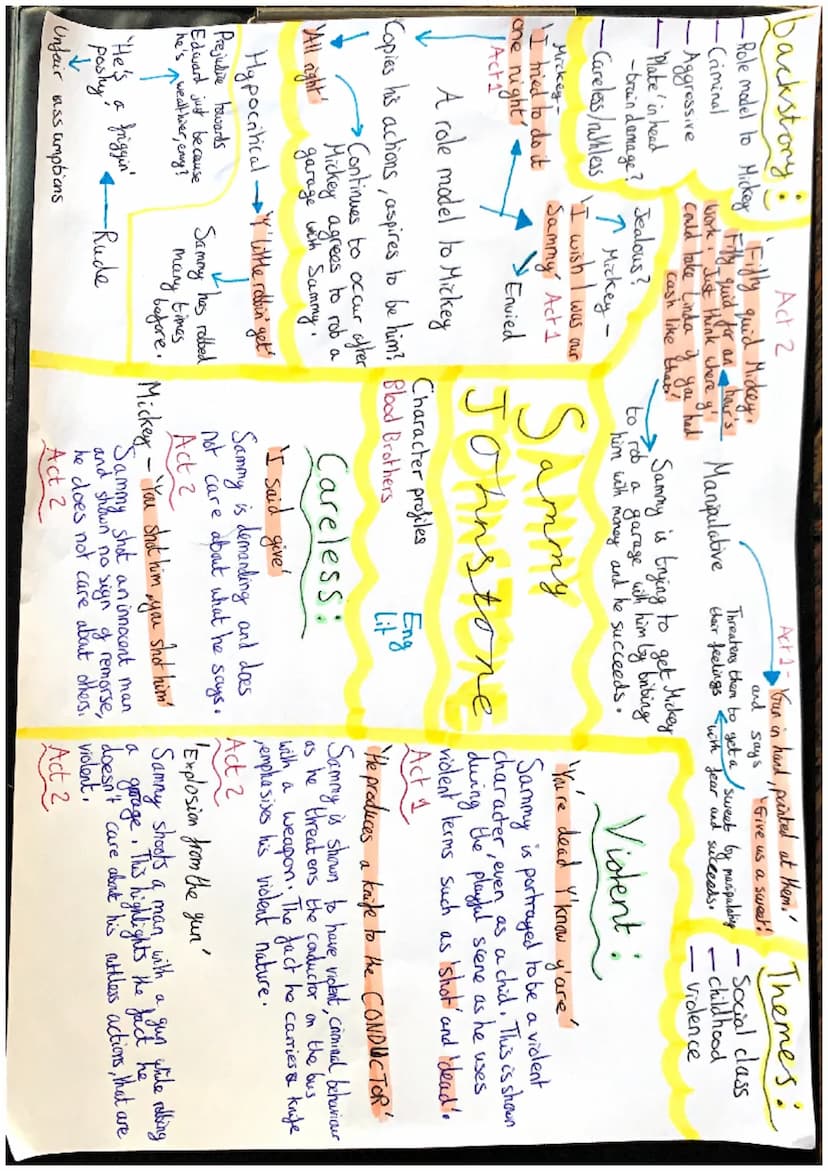 backstory:
– Role model to Mickey
– Criminal
– Aggressive
– 'Plate' in head
– brain damage?
– Careless/ruthless
Act 2
'Fifty quid Mickey.
Fifty quid for an hour's
work. Just think where y'
could take Linda if you had
cash like that.'
Manipulative
Sammy is trying to get Mickey
to rob a garage with him by bribing
him with money and he succeeds.
Act 1 – 'Gun in hand, pointed at them.'
and says 'Give us a sweet!'
Threatens them to get a sweet by manipulating
their feelings with fear and succeeds.
Themes:
– Social class
– childhood
– violence
Mickey –
'I tried to do it
one night'
Act 1
Jealous?
Mickey –
'I wish I was our
Sammy' Act 1
Envied
A role model to Mickey
Copies his actions, aspires to be him?
'All right'
Continues to occur after
Mickey agrees to rob a
garage with Sammy.
Hypocritical
'Y' little robbin' get'
Sammy has robbed
many times
before.
Prejudice towards
Edward just because
he's wealthier, envy?
'He's a friggin'
poshy'
Rude
Unfair assumptions
Sammy
Johnstone
Character profiles
Blood Brothers
Eng
Lit
Careless:
'I said give'
Sammy is demanding and does
not care about what he says.
Act 2
Mickey – 'You shot him, you shot him'
Sammy shot an innocent man
and shown no sign of remorse,
he does not care about others.
Act 2
Violent:
'You're dead y'know y'are'
Sammy is portrayed to be a violent
character, even as a child. This is shown
during the playful scene as he uses
violent terms such as 'shot' and 'dead'.
Act 1
'He produces a knife to the CONDUCTOR'
Sammy is shown to have violent, criminal behaviour
as he threatens the conductor on the bus
with a weapon. The fact he carries a knife
,emphasises his violent nature.
Act 2
'Explosion from the gun'
Sammy shoots a man with a gun while robbing
a garage. This highlights the fact he
doesn't care about his ruthless actions, that are
violent.
Act 2